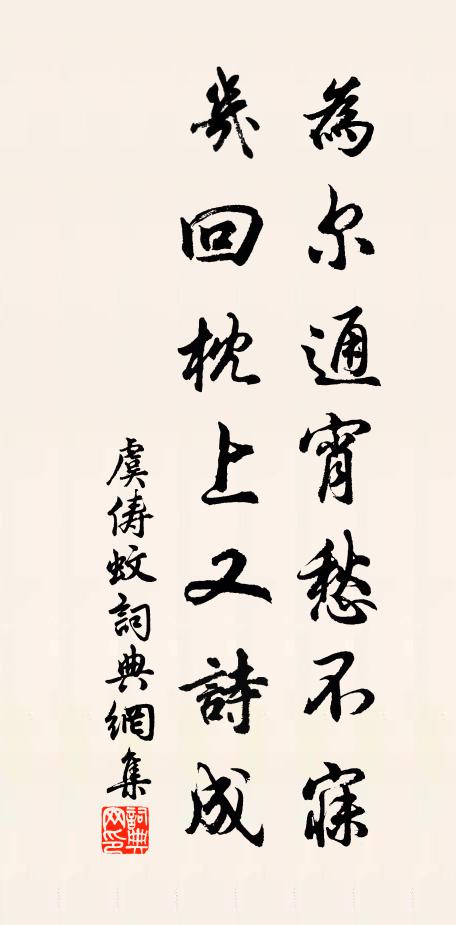 為尔通宵愁不寐
幾回枕上又詩成
虞俦蚊詞典網集
詞典網印